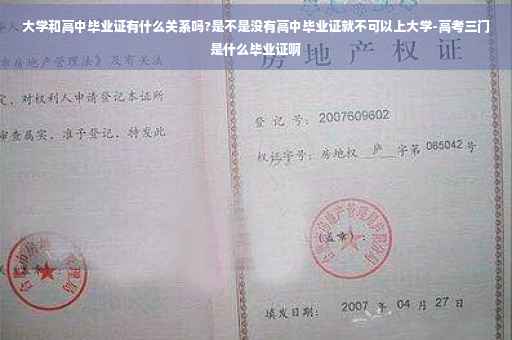 大学和高中毕业证有什么关系吗?是不是没有高中毕业证就不可以上大学-高考三门
是什么毕业证啊
房地产权证
管理法》及有关法
定，对权利人申请登记本证所
审查属实，准予登记，特发此
登 记 号：2007609602
权证字号：房地权 庐 字第 085042 号
(盖章)：
填发日期： 2007 年 04 月 27 日